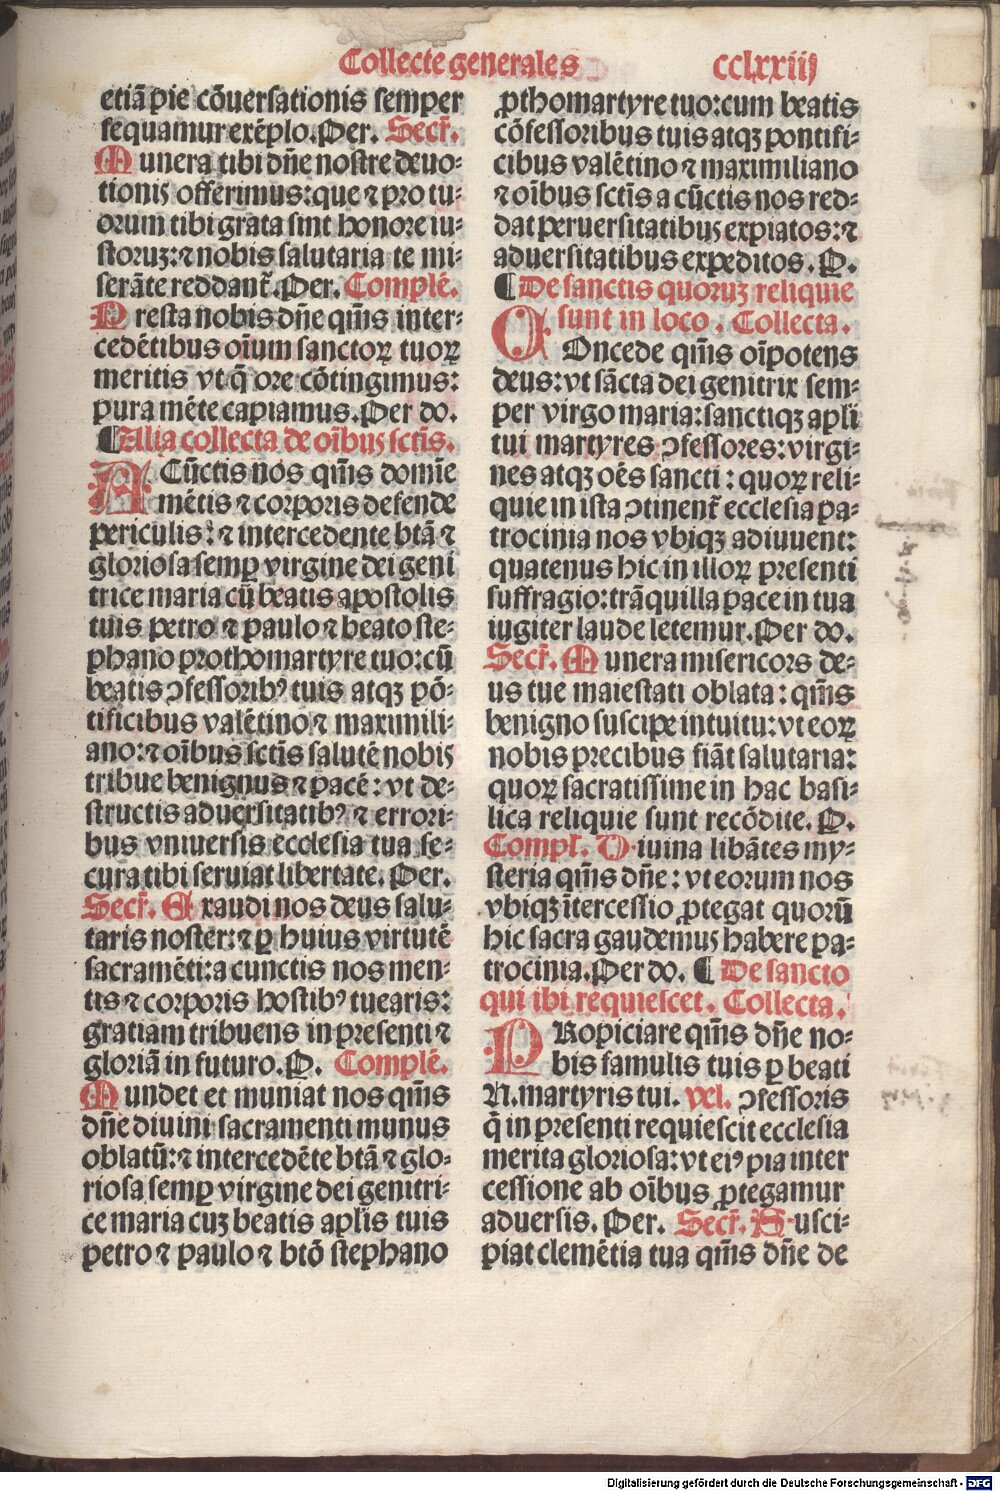 Collecte generales cclxxiiȷ
etiā pie cōuersationis semper
sequamur exēplo. Per. Secr̄.
Munera tibi dn̄e nostre deuo-
tionis offerimus: que ⁊ pro tu-
orum tibi grata sint honore iu-
storuꝫ: ⁊ nobis salutaria te mi-
serāte reddant̄. Per. Complē.
Presta nobis dn̄e qm̄s inter-
cedētibus oīum sanctoꝝ tuoꝝ
meritis vt q̄ ore cōtingimus:
pura mēte capiamus. Per do.
¶ Alia collecta de oībus sctīs.
A Cūctis nos qm̄s domīe
mētis ⁊ corporis defende
periculis: ⁊ intercedente btā ⁊
gloriosa semꝑ virgine dei geni
trice maria cū beatis apostolis
tuis petro ⁊ paulo ⁊ beato ste-
phano prothomartyre tuo: cū
beatis ↄfessoribꝰ tuis atqꝫ pō-
tificibus valētino ⁊ maximili-
ano: ⁊ oībus sctīs salutē nobis
tribue benignus ⁊ pacē: vt de-
structis aduersitatibꝰ ⁊ errori-
bus vniuersis ecclesia tua se-
cura tibi seruiat libertate. Per.
Secr̄. Exaudi nos deus salu-
taris noster: ⁊ ꝑ huius virtutē
sacramēti: a cunctis nos men-
tis ⁊ corporis hostibꝰ tuearis:
gratiam tribuens in presenti ⁊
gloriā in futuro. P. Complē.
Mundet et muniat nos qm̄s
dn̄e diuini sacramenti munus
oblatū: ⁊ intercedēte btā ⁊ glo-
riosa semꝑ virgine dei genitri-
ce maria cuꝫ beatis apl̄is tuis
petro ⁊ paulo ⁊ btō stephano
ꝓthomartyre tuo: cum beatis
cōfessoribus tuis atqꝫ pontifi-
cibus valētino ⁊ maximiliano
⁊ oībus sctīs a cūctis nos red-
dat peruersitatibus expiatos: ⁊
aduersitatibus expeditos. P.
¶ De sanctis quoruꝫ reliquie
sunt in loco. Collecta.
COncede qm̄s oīpotens
deus: vt sācta dei genitrix sem-
per virgo maria: sanctiqꝫ apl̄i
tui martyres ↄfessores: virgi-
nes atqꝫ oēs sancti: quoꝝ reli-
quie in ista ↄtinent̄ ecclesia pa-
trocinia nos vbiqꝫ adiuuent:
quatenus hic in illoꝝ presenti
suffragio: trāquilla pace in tua
iugiter laude letemur. Per do.
Secr̄. Munera misericors de-
us tue maiestati oblata: qm̄s
benigno suscipe intuitu: vt eoꝝ
nobis precibus fiāt salutaria:
quoꝝ sacratissime in hac basi-
lica reliquie sunt recōdite. P.
Compl̄. Diuina libātes my-
steria qm̄s dn̄e: vt eorum nos
vbiqꝫ ītercessio ꝓtegat quorū
hic sacra gaudemus habere pa-
trocinia. Per do. ¶ De sancto
qui ibi requiescet. Collecta.
PRopiciare qm̄s dn̄e no-
bis famulis tuis ꝑ beati
N. martyris tui. vel. ↄfessoris
q̄ in presenti requiescit ecclesia
merita gloriosa: vt eiꝰ pia inter
cessione ab oībus ꝓtegamur
aduersis. Per. Secr̄. Susci-
piat clemētia tua qm̄s dn̄e de
Digitalisierung gefördert durch die Deutsche Forschungsgemeinschaft - DFG